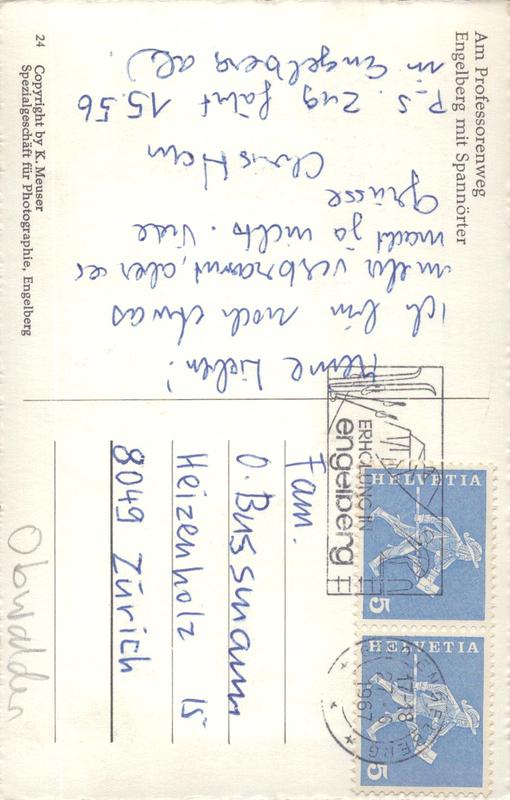 Am Professorenweg
Engelberg mit Spannörter
Meine Lieben!
Ich bin noch etwas
mehr verbrannt, aber es
macht ja nichts. Viele
Grüsse
P.S. Zug fährt 15.56
in Engelberg ab.)
24 Copyright by K. Meuser
Spezialgeschäft für Photographie, Engelberg
ERHOLUNG IN
engelberg
HELVETIA
5
HELVETIA
5
17-18
1967
Fam.
O. Bussmann
Heizenholz 15
8049 Zürich
Obwalden